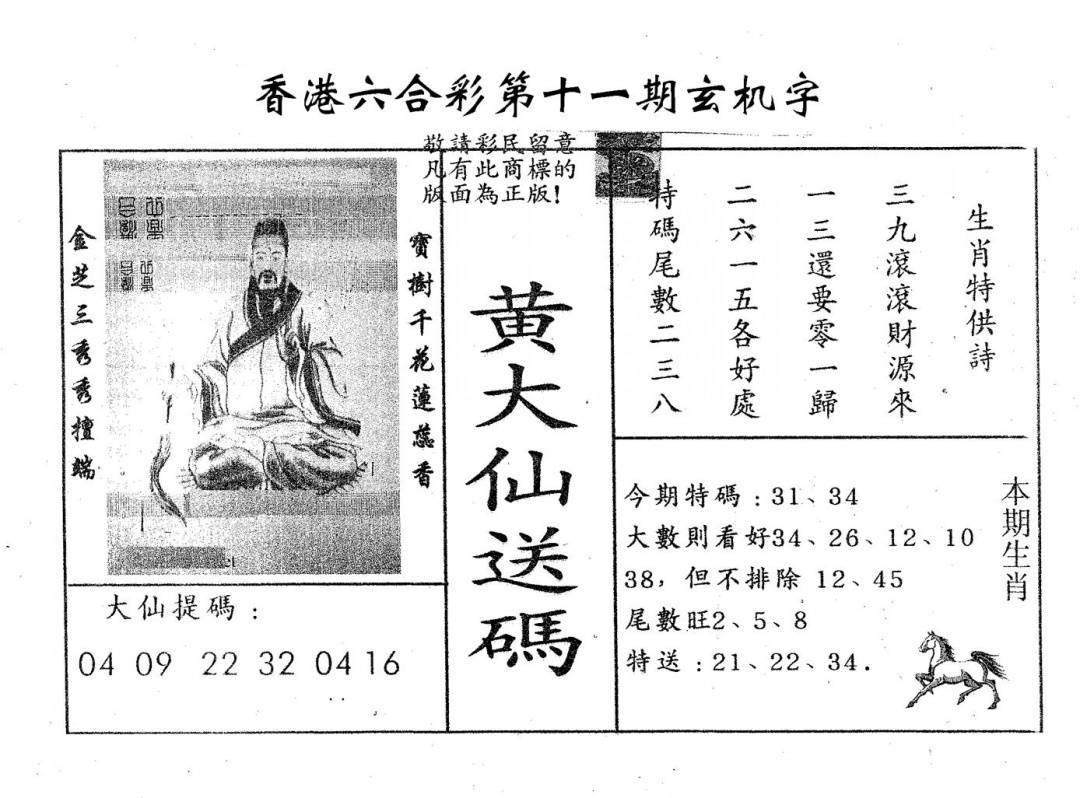 香港六合彩第十一期玄机字
敬請彩民留意
凡有此商標的
版面為正版!
金芝三秀秀擅端
寶樹千花蓮蕊香
大仙提碼:
04 09 22 32 04 16
黄大仙送碼
生肖特供詩
三九滾滾財源來
一三還要零一歸
二六一五各好處
特碼尾數二三八
本期生肖
今期特碼:31、34
大數則看好34、26、12、10
38,但不排除 12、45
尾數旺2、5、8
特送:21、22、34.